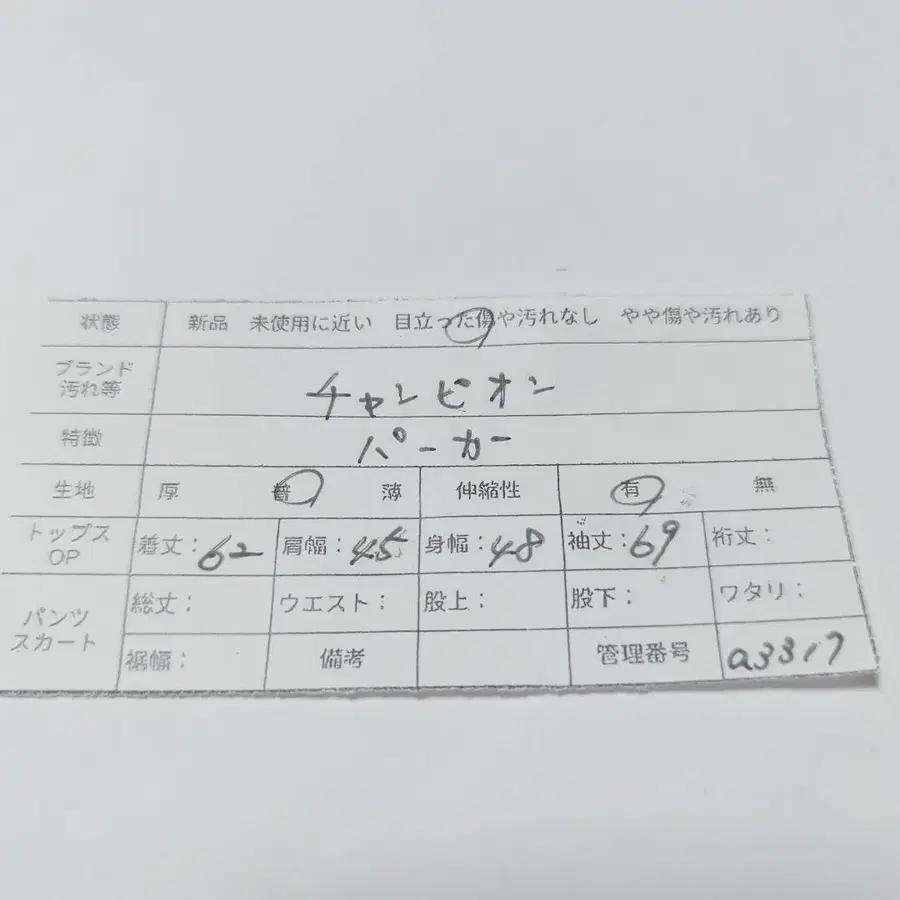 状態 新品 未使用に近い 目立った傷や汚れなし やや傷や汚れあり
ブランド
汚れ等 チャンピオン
特徴 パーカー
生地 厚 普 薄 伸縮性 有 無
トップス
OP 着丈:62 肩幅:45 身幅:48 袖丈:69 裄丈:
パンツ
スカート 総丈: ウエスト: 股上: 股下: ワタリ:
裾幅: 備考 管理番号 a3317